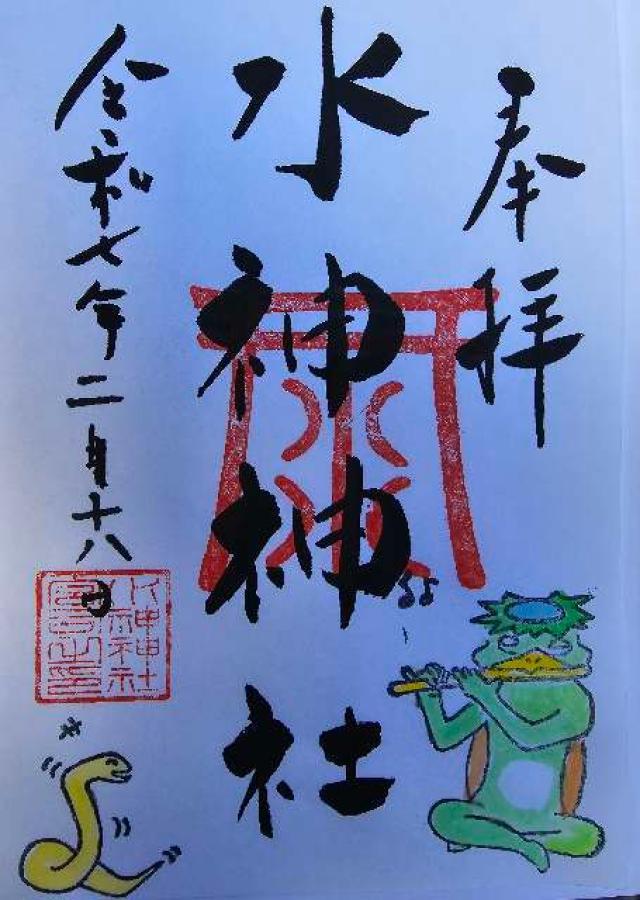 奉拝
水神神社
令和七年二月十八日
水神神社
宮司之印